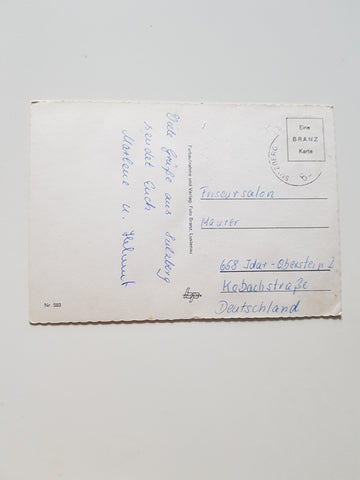 Viele Grüße aus Sulzberg
sendet Euch
Marlene u. Helmut
Nr. 593
Farbaufnahme und Verlag: Foto Branz, Lustenau
Eine
BRANZ
Karte
Friseursalon
Maurer
668 Idar-Oberstein 2
Kobachstraße
Deutschland